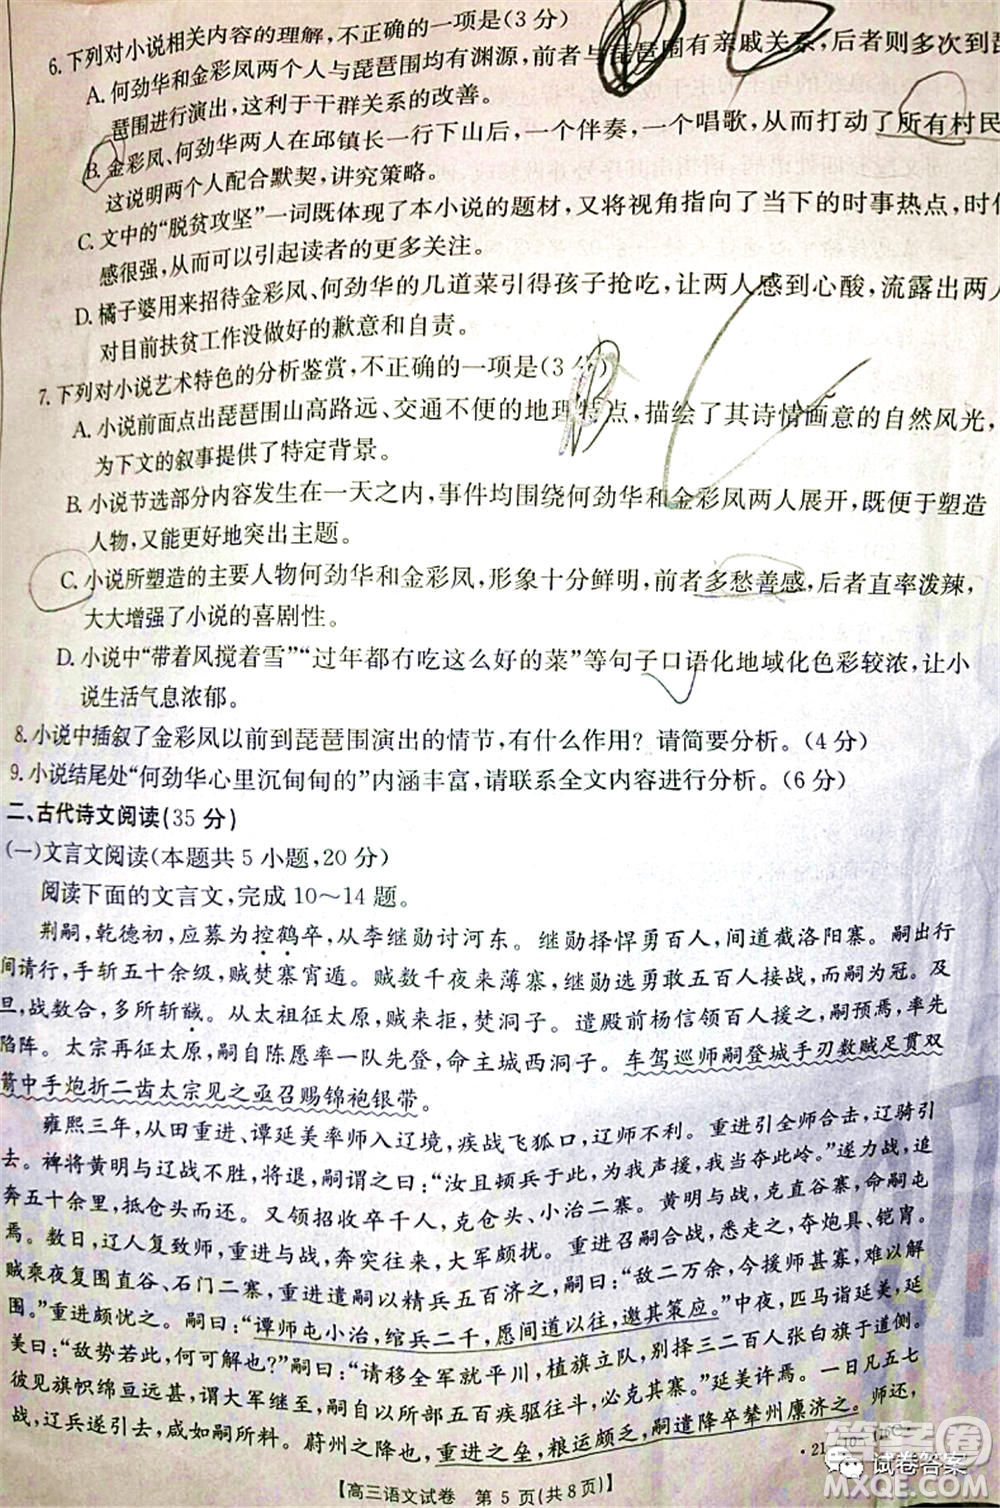 6. 下列对小说相关内容的理解,不正确的一项是(3 分)
A. 何劲华和金彩凤两个人与琵琶围均有渊源,前者与琵琶围有亲戚关系,后者则多次到琵
琶围进行演出,这利于干群关系的改善。
B. 金彩凤、何劲华两人在邱镇长一行下山后,一个伴奏,一个唱歌,从而打动了所有村民
这说明两个人配合默契,讲究策略。
C. 文中的“脱贫攻坚”一词既体现了本小说的题材,又将视角指向了当下的时事热点,时代
感很强,从而可以引起读者的更多关注。
D. 橘子婆用来招待金彩凤、何劲华的几道菜引得孩子抢吃,让两人感到心酸,流露出两人
对目前扶贫工作没做好的歉意和自责。
7. 下列对小说艺术特色的分析鉴赏,不正确的一项是(3 分)
A. 小说前面点出琵琶围山高路远、交通不便的地理特点,描绘了其诗情画意的自然风光,
为下文的叙事提供了特定背景。
B. 小说节选部分内容发生在一天之内,事件均围绕何劲华和金彩凤两人展开,既便于塑造
人物,又能更好地突出主题。
C. 小说所塑造的主要人物何劲华和金彩凤,形象十分鲜明,前者多愁善感,后者直率泼辣,
大大增强了小说的喜剧性。
D. 小说中“带着风搅着雪”“过年都冇吃这么好的菜”等句子口语化地域化色彩较浓,让小
说生活气息浓郁。
8. 小说中插叙了金彩凤以前到琵琶围演出的情节,有什么作用? 请简要分析。(4 分)
9. 小说结尾处“何劲华心里沉甸甸的”内涵丰富,请联系全文内容进行分析。(6 分)
二、古代诗文阅读(35 分)
(一)文言文阅读(本题共 5 小题,20 分)
阅读下面的文言文,完成 10～14 题。
荆嗣,乾德初,应募为控鹤卒,从李继勋讨河东。继勋择悍勇百人,间道截洛阳寨。嗣出行
间请行,手斩五十余级,贼焚寨宵遁。贼数千夜来薄寨,继勋选勇敢五百人接战,而嗣为冠。及
旦,战数合,多所斩馘。从太祖征太原,贼来拒,焚洞子。遣殿前杨信领百人援之,嗣预焉,率先
陷阵。太宗再征太原,嗣自陈愿率一队先登,命主城西洞子。车驾巡师嗣登城手刃数贼足贯双
箭中手炮折二齿太宗见之亟召赐锦袍银带。
雍熙三年,从田重进、谭延美率师入辽境,疾战飞狐口,辽师不利。重进引全师合击,辽骑引
去。裨将黄明与辽战不胜,将退,嗣谓之曰:“汝且顿兵于此,为我声援,我当夺此岭。”遂力战,追
奔五十余里,抵仓头而还。又领招收卒千人,克仓头、小治二寨。黄明与战,克直谷寨,命嗣屯
焉。数日,辽人复致师,重进与战,奔突往来,大军颇扰。重进召嗣合战,悉走之,夺炮具、铠胄。
贼乘夜复围直谷、石门二寨,重进遣嗣以精兵五百济之,嗣曰:“敌二万余,今援师甚寡,难以解
围。”重进颇忧之。嗣曰:“谭师屯小治,绾兵二千,愿间道以往,邀其策应。”中夜,匹马诣延美,延
美曰:“敌势若此,何可解也?”嗣曰:“请移全军就平川,植旗立队,别择三二百人张白旗于道侧。
彼见旗帜绵亘远甚,谓大军继至,嗣自以所部五百疾驱往斗,必克其寨。”延美许焉。一日凡五七
战,辽兵遂引去,咸如嗣所料。蔚州之战,重进之垒,粮运颇乏,嗣遣降卒辇州廪济之。师还,
【高三语文试卷 第 5 页(共 8 页)】
答案圈
试卷答案